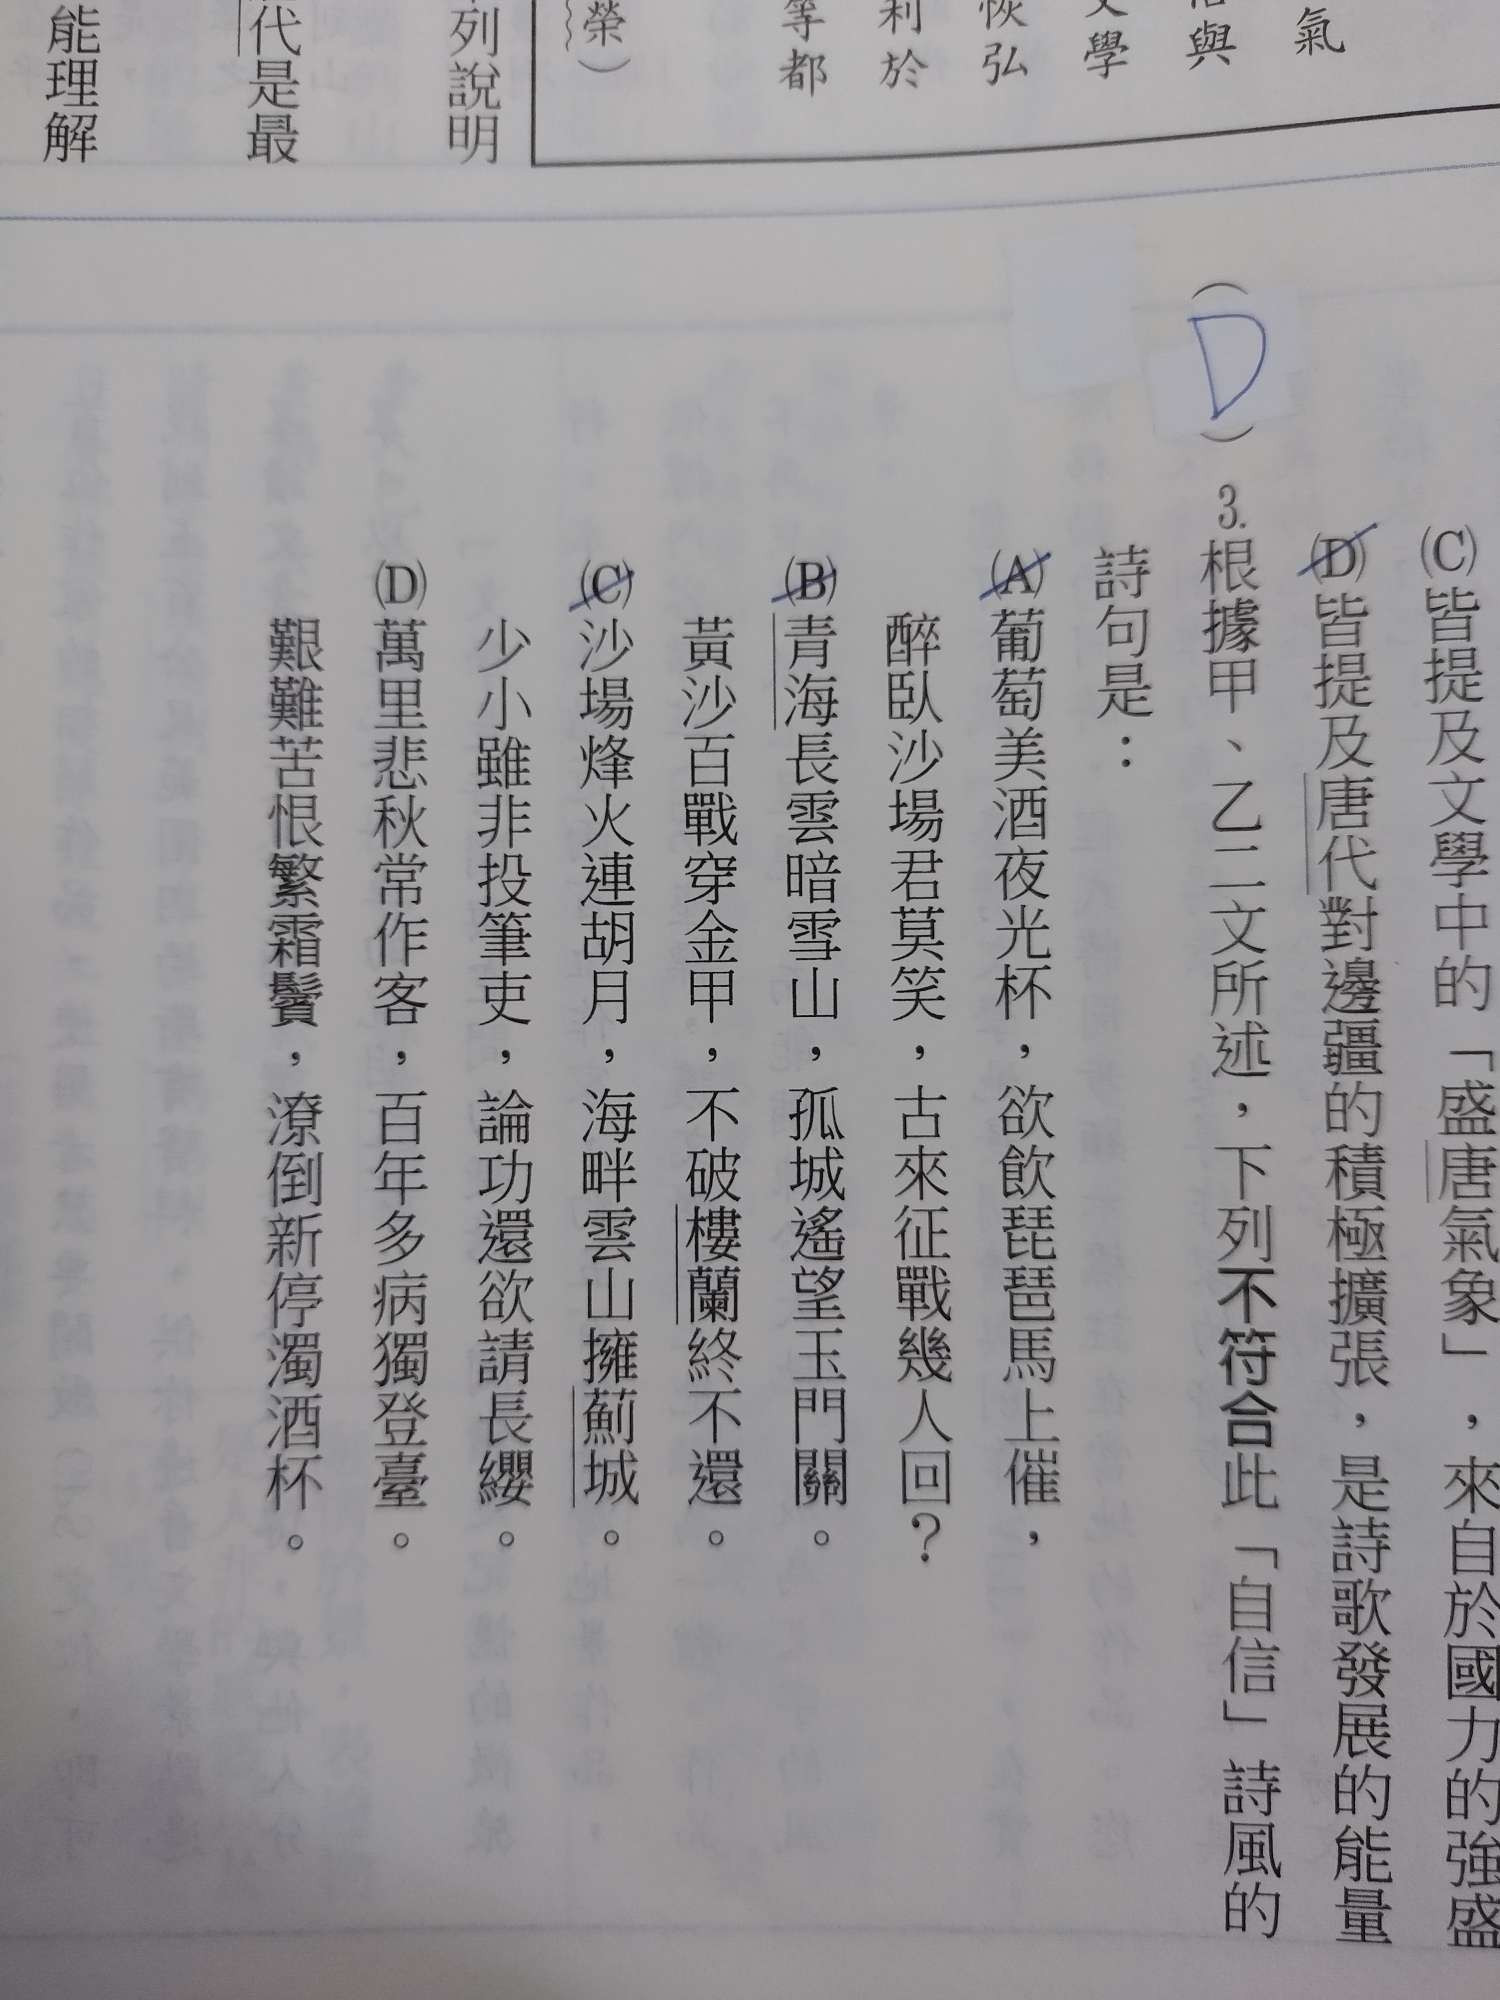 氣
信與
文學
恢弘
利於
等都
榮）
列說明
代是最
能理解
(C)皆提及文學中的「盛唐氣象」，來自於國力的強盛
(D)皆提及唐代對邊疆的積極擴張，是詩歌發展的能量
（D）3.根據甲、乙二文所述，下列不符合此「自信」詩風的
詩句是：
(A)葡萄美酒夜光杯，欲飲琵琶馬上催，
醉臥沙場君莫笑，古來征戰幾人回？
(B)青海長雲暗雪山，孤城遙望玉門關。
黃沙百戰穿金甲，不破樓蘭終不還。
(C)沙場烽火連胡月，海畔雲山擁薊城。
少小雖非投筆吏，論功還欲請長纓。
(D)萬里悲秋常作客，百年多病獨登臺。
艱難苦恨繁霜鬢，潦倒新停濁酒杯。